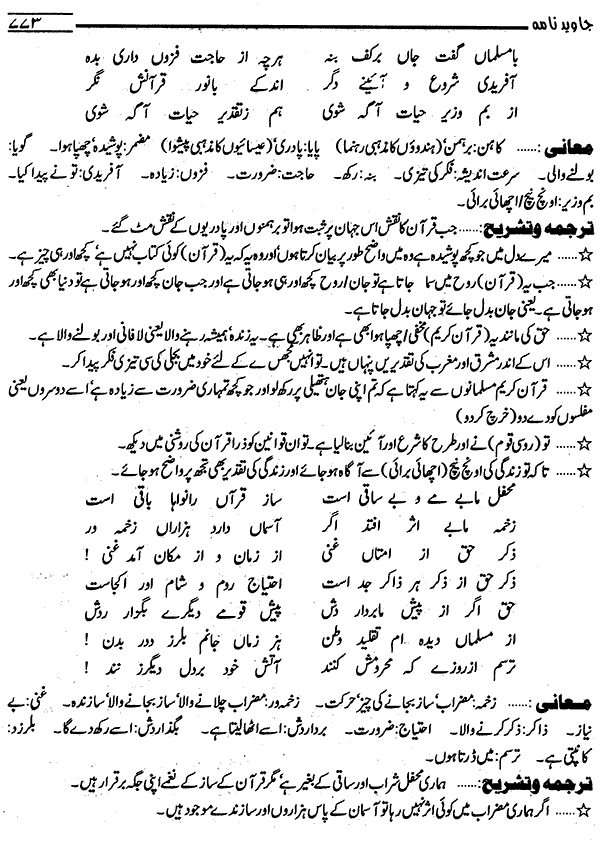 جاوید نامہ ۷۷۳
بامسلماں گفت جاں برکف بنہ ہرچہ از حاجت فزوں داری بدہ
آفریدی شروع و آئینے دگر اندکے بانور قرآنش نگر
از بم وزیر حیات آگہ شوی ہم زتقدیر حیات آگہ شوی
معانی: ...... کاہن: برہمن‘ (ہندوؤں کا مذہبی رہنما) پاپا: پادری‘ (عیسائیوں کا مذہبی پیشوا) مضمر: پوشیدہ‘ چھپا ہوا۔ گویا:
بولنے والی۔ سرعت اندیشہ: فکر کی تیزی۔ بنہ: رکھ۔ حاجت: ضرورت۔ فزوں: زیادہ۔ آفریدی: تو نے پیدا کیا۔
بم وزیر: اونچ نیچ/ اچھائی برائی۔
ترجمہ وتشریح: ...... جب قرآن کا نقش اس جہان پر ثبت ہوا تو برہمنوں اور پادریوں کے نقش مٹ گئے۔
☆...... میرے دل میں جو کچھ پوشیدہ ہے وہ میں واضح طور پر بیان کرتا ہوں‘ اور وہ یہ کہ یہ (قرآن) کوئی کتاب نہیں ہے‘ کچھ اور ہی چیز ہے۔
☆...... جب یہ (قرآن) روح میں سما جاتا ہے تو جان/ روح کچھ اور ہی ہو جاتی ہے اور جب جان کچھ اور ہو جاتی ہے تو دنیا بھی کچھ اور
ہو جاتی ہے۔ یعنی جان بدل جائے تو جہان بدل جاتا ہے۔
☆...... حق کی مانند یہ (قرآن کریم) مخفی / چھپا ہوا بھی ہے اور ظاہر بھی ہے۔ یہ زندہ‘ ہمیشہ رہنے والا یعنی لافانی اور بولنے والا ہے۔
☆...... اس کے اندر مشرق اور مغرب کی تقدیریں پنہاں ہیں۔ تو انہیں سمجھنے کے لئے خود میں بجلی کی سی تیزی فکر پیدا کر۔
☆...... قرآن کریم مسلمانوں سے یہ کہتا ہے کہ تم اپنی جان ہتھیلی پر رکھ لو اور جو کچھ تمہاری ضرورت سے زیادہ ہے‘ اسے دوسروں یعنی
مفلسوں کو دے دو (خرچ کر دو)
☆...... تو (روسی قوم) نے اور طرح کا شرع اور آئین بنا لیا ہے۔ تو ان قوانین کو ذرا قرآن کی روشنی میں دیکھ۔
☆...... تاکہ تو زندگی کی اونچ نیچ (اچھائی برائی) سے آگاہ ہو جائے اور زندگی کی تقدیر بھی تجھ پر واضح ہو جائے۔
محفل مابے مے و بے ساقی است ساز قرآں رانواہا باقی است
زخمہ مابے اثر افتد اگر آسماں دارد ہزاراں زخمہ ور
ذکر حق از امتاں غنی از زمان و از مکاں آمد غنی !
ذکر حق از ذکر ہر ذاکر جد است احتیاج روم و شام اور اکجاست
حق اگر از پیش مابردار دش پیش قومے دیگرے بگزار ردش
از مسلماں دیدہ ام تقلید وظن ہر زماں جانم بلرز ددر بدن !
ترسم ازروزے کہ محرومش کنند آتش خود بردل دیگرز نند !
معانی: ...... زخمہ: مضراب‘ ساز بجانے کی چیز‘ حرکت۔ زخمہ ور: مضراب چلانے والا‘ ساز بجانے والا‘ سازندہ۔ غنی: بے
نیاز۔ ذاکر: ذکر کرنے والا۔ احتیاج: ضرورت۔ برداردش: اسے اٹھا لیتا ہے۔ بگذاردش: اسے رکھ دے گا۔ بلرزد:
کانپتی ہے۔ ترسم: میں ڈرتا ہوں۔
ترجمہ وتشریح: ...... ہماری محفل شراب اور ساقی کے بغیر ہے‘ مگر قرآن کے ساز کے نغمے اپنی جگہ برقرار ہیں۔
☆...... اگر ہماری مضراب میں کوئی اثر نہیں رہا تو آسمان کے پاس ہزاروں اور سازندے موجود ہیں۔